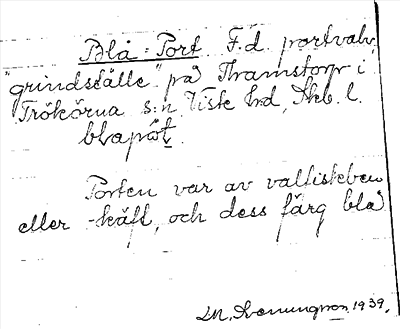 Blå-Port F.d. portvalv,
"grindställe" på Framstorp i
Trökörna s:n Viste hd, Skb. l.
blapöt.
Porten var av valfiskben
eller -käft, och dess färg blå